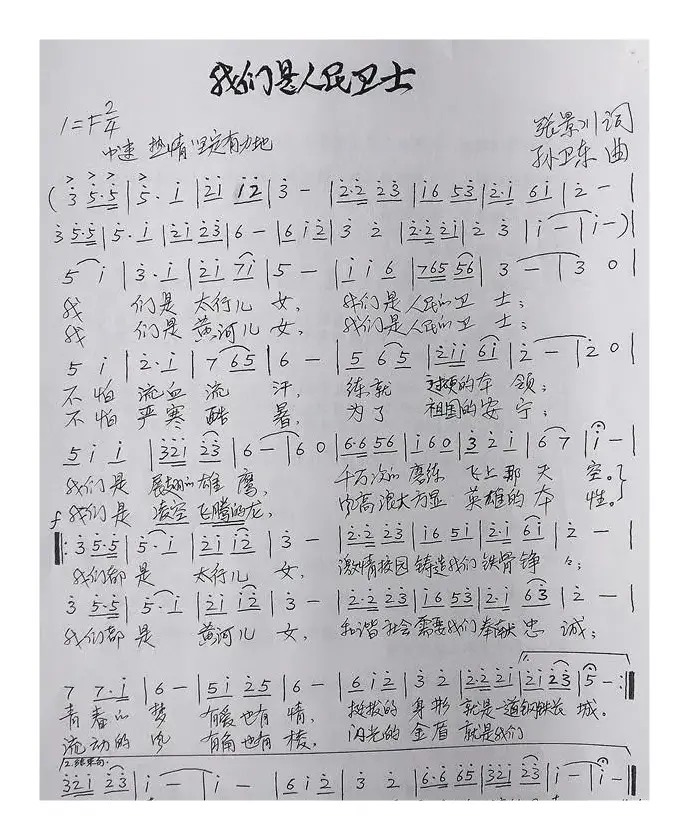 我们是人民卫士
1=F 2/4
中速 热情坚定有力地
张景川 词
孙卫东 曲
(3 5·5 | 5· i | 2i i2 | 3 — | 2·2 23 | i6 53 | 2·i 6i | 2 — |
3 5·5 | 5· i | 2i 23 | 6 — | 6 i2 | 3 2 | 2·2 2i | 2 3 | i — | i — )|
5 i | 3· i | 2i 7i | 5 — | i i 6 | 765 56 | 3 — | 3 0 |
我 们是 太行儿 女, 我们是人民的卫 士;
我 们是 黄河儿 女, 我们是人民的卫 士;
5 i | 2· i | 7 65 | 6 — | 5 65 | 2ii 6i | 2 — | 2 0 |
不 怕 流血 流 汗, 练就 过硬的本 领;
不 怕 严寒 酷 暑, 为了 祖国的安 宁;
5 i i | 32i 23 | 6 — | 6 0 | 6·6 56 | i 6 0 | 3 2 i | 6 7 | i — |
我们是 展翅的雄 鹰, 千万次的 磨练 飞上那 天 空。
f 我们是 凌空飞腾的龙, 风高浪大方显 英雄的 本 性。
‖: 3 5·5 | 5· i | 2i i2 | 3 — | 2·2 23 | i6 5i | 2·i 6i | 2 — |
我们都 是 太行儿 女, 激情校园铸造我们铁骨铮 々;
3 5·5 | 5· i | 2i i2 | 3 — | 2·2 23 | i6 53 | 2·i 63 | 2 — |
我们都 是 黄河儿 女, 和谐社会需要我们奉献忠 诚;
7 7·i | 6 — | 5i 25 | 6 — | 6 i2 | 3 2 | 2·2 2i | 2i 23 | 5 — :‖
青春的 梦 有爱也有 情, 挺拔的 身形 就是一道钢铁长 城。
流动的 风 有角也有 棱, 闪光的 金盾 就是我们
2.结束句.
32i 23 | i — | i — | 6 i2 | 3 2 | 6·6 65 | 32i 23 | i — | i — |